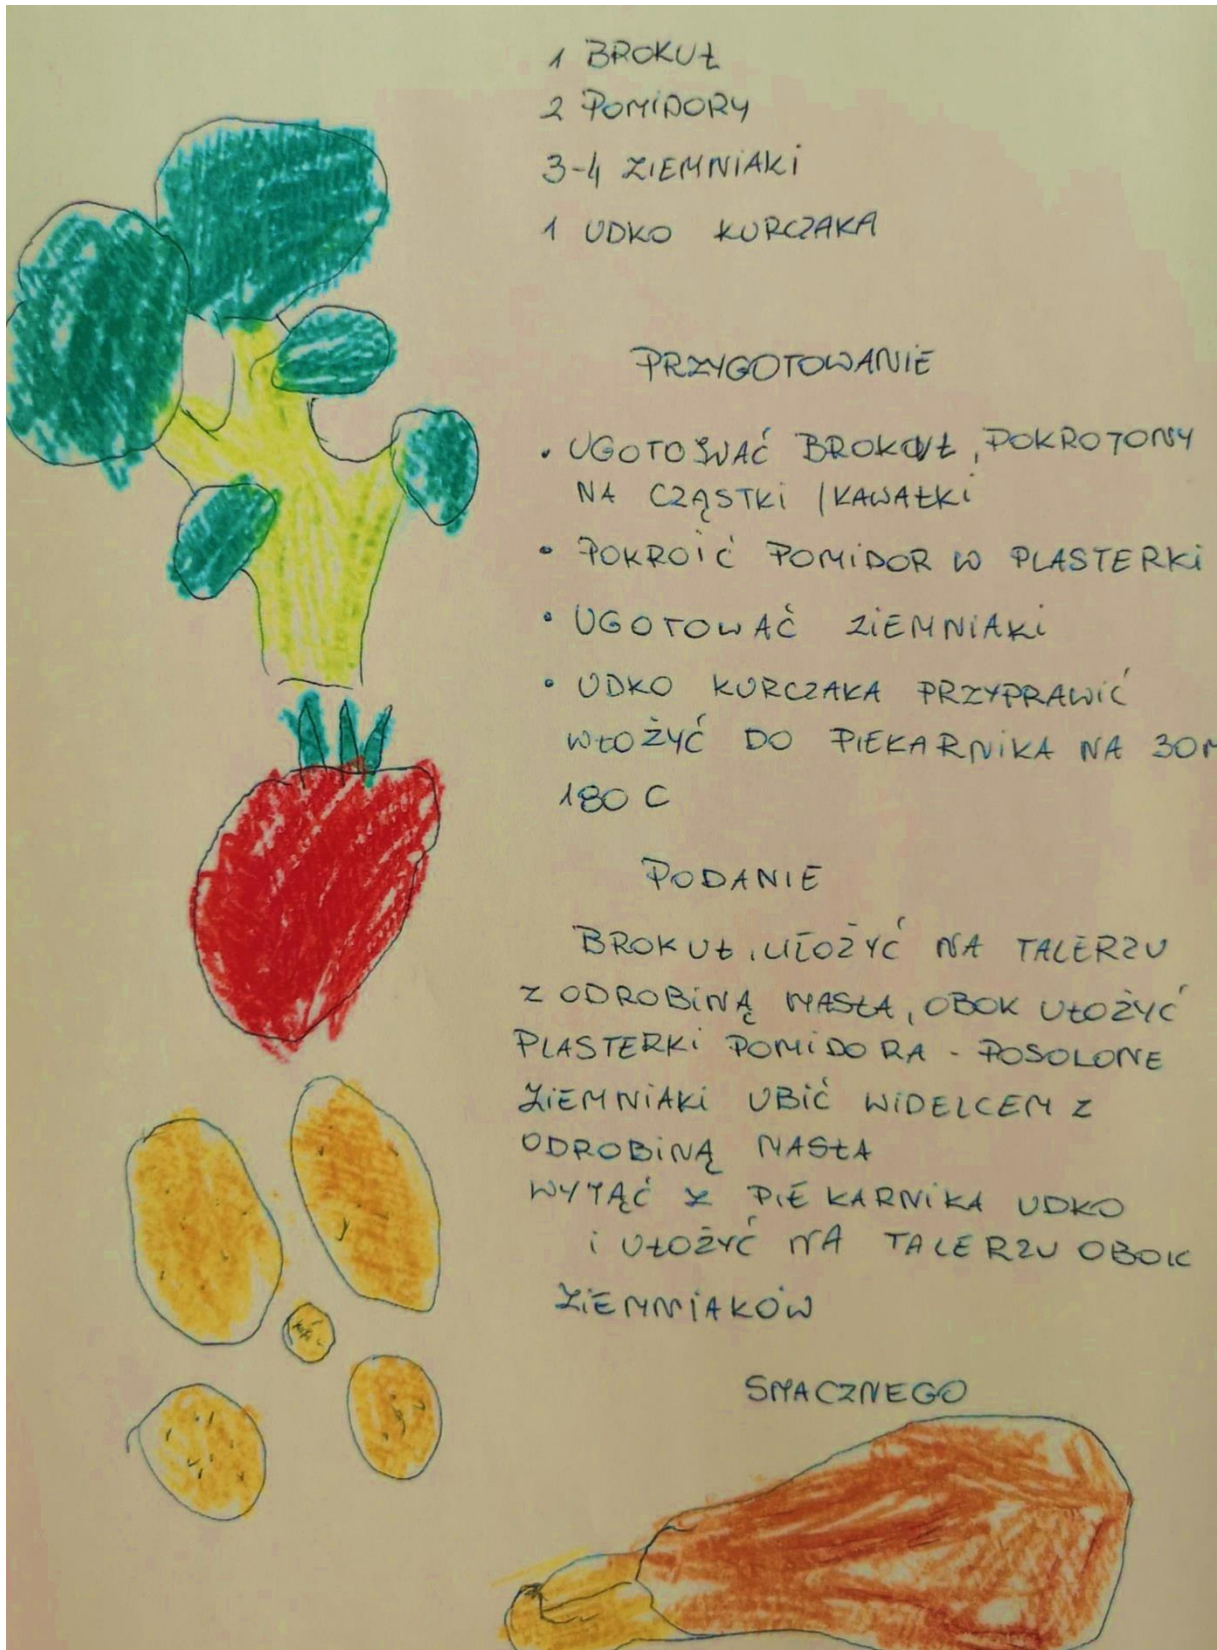 1 BROKUŁ
2 POMIDORY
3-4 ZIEMNIAKI
1 UDKO KURCZAKA
PRZYGOTOWANIE
• UGOTOWAĆ BROKUŁ, POKROJONY
NA CZĄSTKI / KAWAŁKI
• POKROIĆ POMIDOR W PLASTERKI
• UGOTOWAĆ ZIEMNIAKI
• UDKO KURCZAKA PRZYPRAWIĆ
WŁOŻYĆ DO PIEKARNIKA NA 30M
180 C
PODANIE
BROKUŁ, UŁOŻYĆ NA TALERZU
Z ODROBINĄ MASŁA, OBOK UŁOŻYĆ
PLASTERKI POMIDORA - POSOLONE
ZIEMNIAKI UBIĆ WIDELCEM Z
ODROBINĄ MASŁA
WYJĄĆ Z PIEKARNIKA UDKO
I UŁOŻYĆ NA TALERZU OBOK
ZIEMNIAKÓW
SMACZNEGO